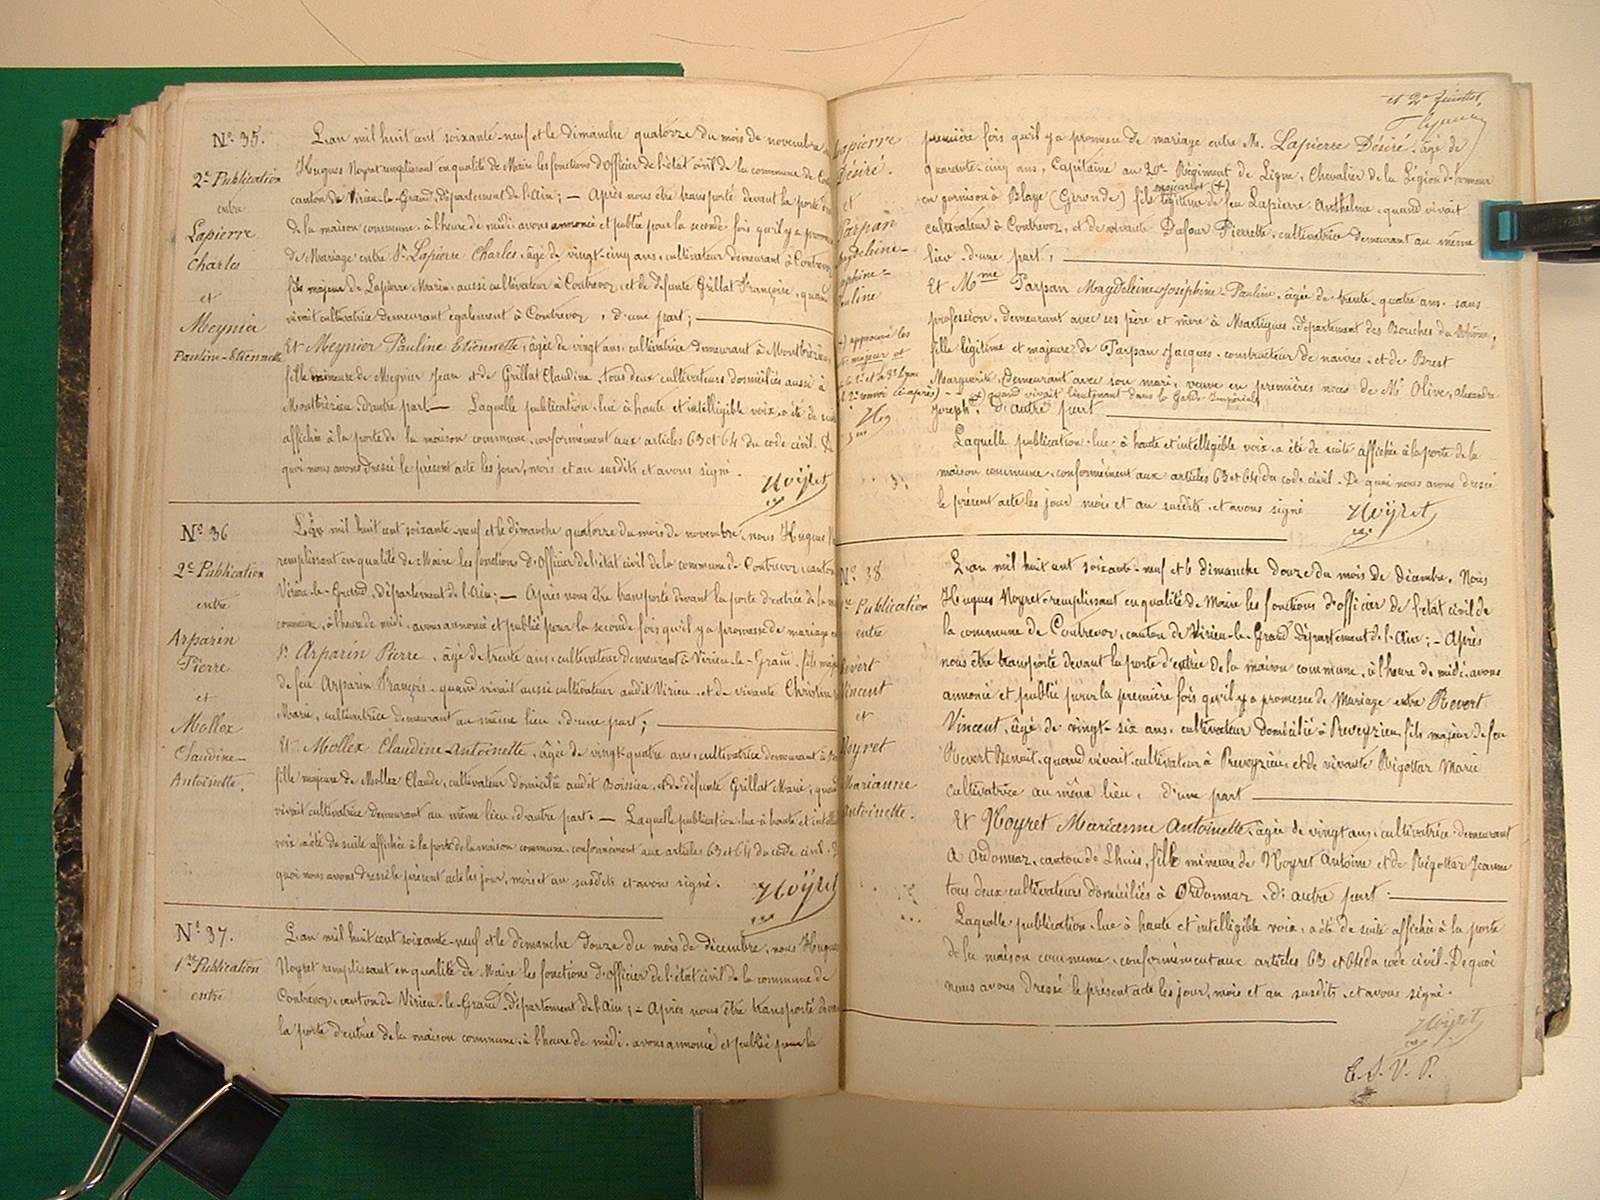 N° 35.
2e Publication
entre
Lapierre
Charles
et
Meynier
Pauline-Etiennette
L'an mil huit cent soixante-neuf et le dimanche quatorze du mois de novembre
Hugues Noyret remplissant en qualité de Maire les fonctions d'Officier de l'état civil de la commune de
canton de Virieu-le-Grand Département de l'Ain; — Après nous être transporté devant la porte
de la maison commune à l'heure de midi avons annoncé et publié pour la seconde fois qu'il y a
de Mariage entre Sr Lapierre Charles, âgé de vingt-cinq ans, cultivateur demeurant à Contrevoz
fils majeur de Lapierre Marin, aussi cultivateur à Contrevoz, et de défunte Grillat Françoise, quand
vivait cultivatrice demeurant également à Contrevoz, d'une part;
Et Meynier Pauline Etiennette, âgée de vingt ans, cultivatrice demeurant à
fille mineure de Meynier Jean et de Grillat Claudine, tous deux cultivateurs domiciliés aussi à
d'autre part — Laquelle publication lue à haute et intelligible voix a été de
affichée à la porte de la maison commune, conformément aux articles 63 et 64 du code civil. De
quoi nous avons dressé le présent acte les jour, mois et an susdits et avons signé.
Noyret
N° 36
2e Publication
entre
Arparin
Pierre
et
Mollex
Claudine-
Antoinette.
L'an mil huit cent soixante-neuf et le dimanche quatorze du mois de novembre, nous Hugues
remplissant en qualité de Maire les fonctions d'Officier de l'état civil de la commune de Contrevoz, canton
Virieu-le-Grand, Département de l'Ain; — Après nous être transporté devant la porte d'entrée de la
commune, à l'heure de midi, avons annoncé et publié pour la seconde fois qu'il y a promesse de mariage
Sr Arparin Pierre, âgé de trente ans, cultivateur demeurant à Virieu-le-Grand, fils
de feu Arparin François, quand vivait aussi cultivateur audit Virieu, et de vivante
Marie, cultivatrice demeurant au même lieu, d'une part;
Et Mollex Claudine-Antoinette, âgée de vingt-quatre ans, cultivatrice demeurant à
fille majeure de Mollex Claude, cultivateur domicilié audit Boissieu, et de défunte Grillat Marie, quand
vivait cultivatrice demeurant au même lieu, d'autre part. — Laquelle publication lue à haute et
voix a été de suite affichée à la porte de la maison commune, conformément aux articles 63 et 64 du code civil.
quoi nous avons dressé le présent acte les jour, mois et an susdits et avons signé.
Noyret
N° 37.
1re Publication
entre
L'an mil huit cent soixante-neuf et le dimanche douze du mois de décembre, nous Hugues
Noyret remplissant en qualité de Maire les fonctions d'Officier de l'état civil de la commune de
Contrevoz, canton de Virieu-le-Grand, Département de l'Ain; — Après nous être transporté
la porte d'entrée de la maison commune, à l'heure de midi, avons annoncé et publié pour la
et 2e feuillet,
Lapierre
Désiré.
et
Parpan
Magdeleine-
Joséphine-
Pauline
première fois qu'il y a promesse de mariage entre M. Lapierre Désiré, âgé de
quarante-cinq ans, Capitaine au 20e Régiment de Ligne, Chevalier de la Légion d'honneur
en garnison à Blaye (Gironde) fils légitime de feu Lapierre Anthelme, quand vivait
cultivateur à Contrevoz, et de vivante Dufour Pierrette, cultivatrice demeurant au même
lieu, d'une part;
Et Mme Parpan Magdeleine-Joséphine-Pauline, âgée de trente-quatre ans, sans
profession, demeurant avec ses père et mère à Martigues, département des Bouches du Rhône,
fille légitime et majeure de Parpan Jacques, constructeur de navires, et de Brest
Marguerite, demeurant avec son mari, veuve en premières noces de Mr Olive, Alexandre
quand vivait lieutenant dans la Garde Impériale
Joseph, d'autre part
Laquelle publication lue à haute et intelligible voix, a été de suite affichée à la porte de la
maison commune, conformément aux articles 63 et 64 du code civil. De quoi nous avons dressé
le présent acte les jour mois et an susdits et avons signé
Noyret
N° 38.
1re Publication
entre
Revert
Vincent
et
Noyret
Marianne
Antoinette.
L'an mil huit cent soixante-neuf et le dimanche douze du mois de décembre, Nous
Hugues Noyret remplissant en qualité de Maire les fonctions d'officier de l'état civil de
la commune de Contrevoz, canton de Virieu-le-Grand Département de l'Ain; — Après
nous être transporté devant la porte d'entrée de la maison commune, à l'heure de midi, avons
annoncé et publié pour la première fois qu'il y a promesse de Mariage entre Revert
Vincent, âgé de vingt-six ans, cultivateur domicilié à Preveyzieu, fils majeur de feu
Revert Benoit, quand vivait cultivateur à Preveyzieu, et de vivante Rigottaz Marie
cultivatrice au même lieu, d'une part
Et Noyret Marianne Antoinette, âgée de vingt ans, cultivatrice demeurant
à Ordonnaz, canton de Lhuis, fille mineure de Noyret Antoine et de Rigottaz Jeanne
tous deux cultivateurs domiciliés à Ordonnaz, d'autre part.
Laquelle publication lue à haute et intelligible voix, a été de suite affichée à la porte
de la maison commune, conformément aux articles 63 et 64 du code civil. De quoi
nous avons dressé le présent acte les jour, mois et an susdits, et avons signé.
Noyret
T. S. V. P.